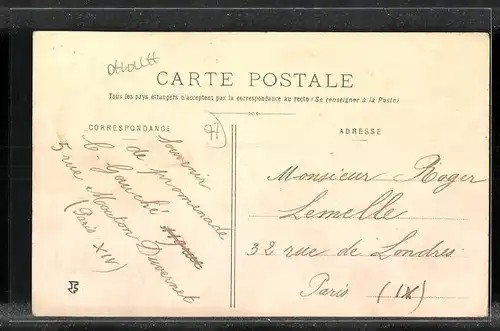 CARTE POSTALE
Tous les pays étrangers n'acceptent pas la correspondance au recto (Se renseigner à la Poste)
CORRESPONDANCE
ADRESSE
Souvenir
de promenade
C. Gauché
5 rue Mouton Duvernet
(Paris XIV)
Monsieur Roger
Lemelle
32 rue de Londres
Paris (IX)